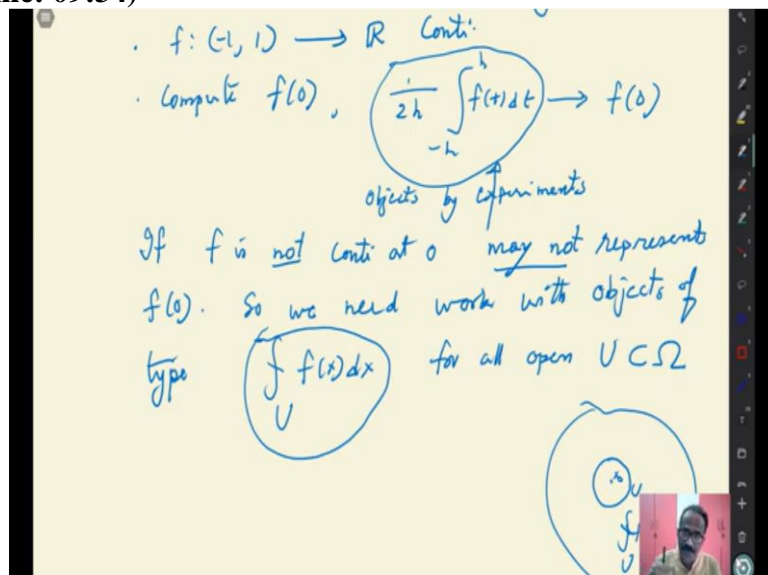 . f: (-1, 1) ⟶ ℝ Conti.
. Compute f(0), 1/2h ∫_{-h}^{h} f(t) dt ⟶ f(0)
objects by experiments
If f is not conti at 0 may not represents
f(0). So we need work with objects of
type ⨍_U f(x) dx for all open U ⊂ Ω
x₀ U
⨍
U